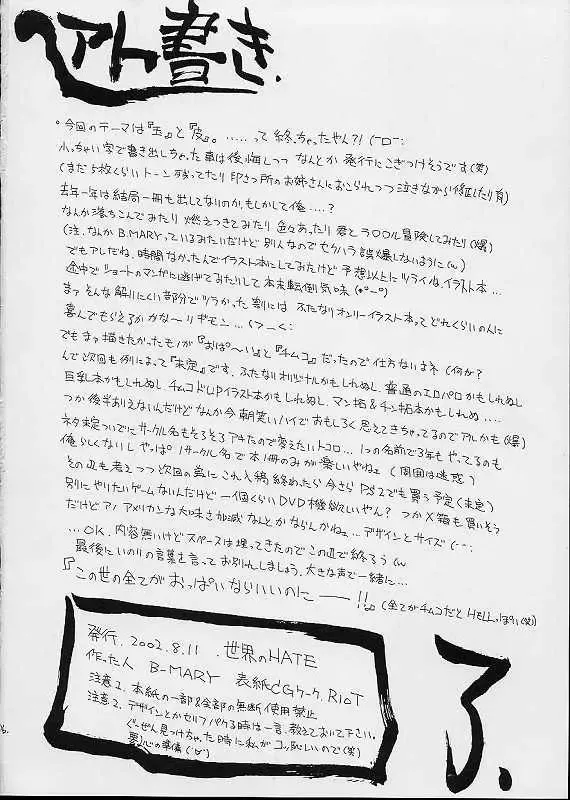 アト書き.
。今回のテーマは『玉』と『皮』。……って終っちゃったやん?!(-□-:
小っちゃい字で書き出しちゃった事は後悔しつつなんとか発行にこぎつけそうです(笑)
(まだ5枚くらいトーン残ってたり印さつ所のお姉さんにおこられつつ泣きながら修正したり育)
去年一年は結局一冊も出してないのか、もしかして俺….?
なんか落ちこんでみたり 燃えつきてみたり 色々あったり 君と ラ〇〇ル冒険してみたり(爆)
(注.なんか B.MARYっているみたいだけど 別人なのでセクハラ誤爆しないように(w)
でもアレだね、時間なかったんでイラスト本にしてみたけど 予想以上にツライね、イラスト本…
途中でショートのマンガに逃げてみたりして本末転倒気味(*°ー°)
まァそんな解りにくい部分でツラかった割には ふたなりオンリーイラスト本って どれくらいの人に
喜んでもらえるかかなーリギモン…(つーく:
でもまァ描きたかったモノが『おぱ〜い』と『チムコ』だったので仕方ないよネ(何が?
んで次回も例によって『未定』です、ふたなりオリジナルかもしれぬし、普通のエロパロかもしれぬし
巨乳本かもしれぬし チムコドUPイラスト本かもしれぬし、マン拓&チン拓本かもしれぬ….
つか後半ありえないんだけど なんか今朝笑いハイでおもしろく思えてきちゃってるのでアレかも(爆)
ネタ未定ついでにサークル名もそろそろアキたので変えたいトコロ…1つの名前で3年もやってるのも
俺らしくないし やっぱ1サークル名で本1冊のみが楽しいやねェ(周囲は迷惑)
その辺も考えつつ次回の為に これ入稿終わったら今さら PS2でも買う予定(未定)
別にやりたいゲームないんだけど 一個くらいDVD機欲しいやん? つかX箱も買いそう
だけどァ アメリカンな大味さ加減なんとかならんかねェ…デザインとサイズ(-‐:
…OK、内容無いけどスペースは埋ってきたのでこの辺で終ろう(w
最後にいのりの言葉を言ってお別れしましょう、大きな声で一緒に…
『この世の全てがおっぱいならいいのにーー!!』(全てがチムコだとHELLっぽい(笑)
発行、2002.8.11 .世界のHATE
作った人 B-MARY 表紙CGワーク.RIOT
注意1、本紙の一部&全部の無断使用禁止
注意2、デザインとかセルフパクる時は一言、教えておいて下さい。
ぐーぜん見つけちゃった時に私がコッ恥しいので(笑)
了、